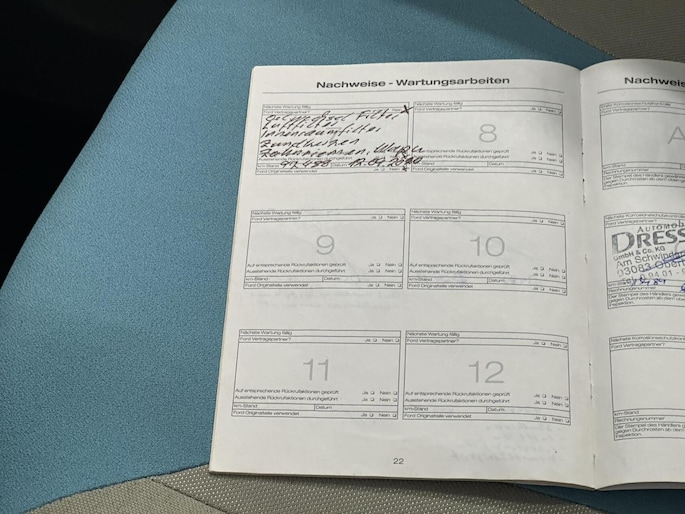 Nachweise - Wartungsarbeiten
Nächste Wartung fällig
Ford Vertragspartner? Nein X
Ölwechsel Filter
Luftfilter
Innenraumfilter
Zündkerzen
Zahnriemen, Wapu
km-Stand 97.480 Datum
Ford Originalteile verwendet Ja Nein X
Nächste Wartung fällig
Ford Vertragspartner? Ja Nein
8
Auf entsprechende Rückrufaktionen geprüft Ja Nein
Ausstehende Rückrufaktionen durchgeführt Ja Nein
km-Stand Datum
Ford Originalteile verwendet Ja Nein
Nächste Wartung fällig
Ford Vertragspartner? Ja Nein
9
Auf entsprechende Rückrufaktionen geprüft Ja Nein
Ausstehende Rückrufaktionen durchgeführt Ja Nein
km-Stand Datum
Ford Originalteile verwendet Ja Nein
Nächste Wartung fällig
Ford Vertragspartner? Ja Nein
10
Auf entsprechende Rückrufaktionen geprüft Ja Nein
Ausstehende Rückrufaktionen durchgeführt Ja Nein
km-Stand Datum
Ford Originalteile verwendet Ja Nein
Nächste Wartung fällig
Ford Vertragspartner? Ja Nein
11
Auf entsprechende Rückrufaktionen geprüft Ja Nein
Ausstehende Rückrufaktionen durchgeführt Ja Nein
km-Stand Datum
Ford Originalteile verwendet Ja Nein
Nächste Wartung fällig
Ford Vertragspartner? Ja Nein
12
Auf entsprechende Rückrufaktionen geprüft Ja Nein
Ausstehende Rückrufaktionen durchgeführt Ja Nein
km-Stand Datum
Ford Originalteile verwendet Ja Nein
22
Nachweis
A
km-Stand
Rechnungsnummer
Der Stempel des Händlers
gegen Durchrosten ab dem
Inspektion.
AUTOMOB
DRESS
GmbH & Co. KG
Am Schwinde
Rechnungsnummer
Der Stempel des Händlers
gegen Durchrosten ab dem
Inspektion.
km-Stand
Rechnungsnummer
Der Stempel des Händlers g
gegen Durchrosten ab dem
Inspektion.